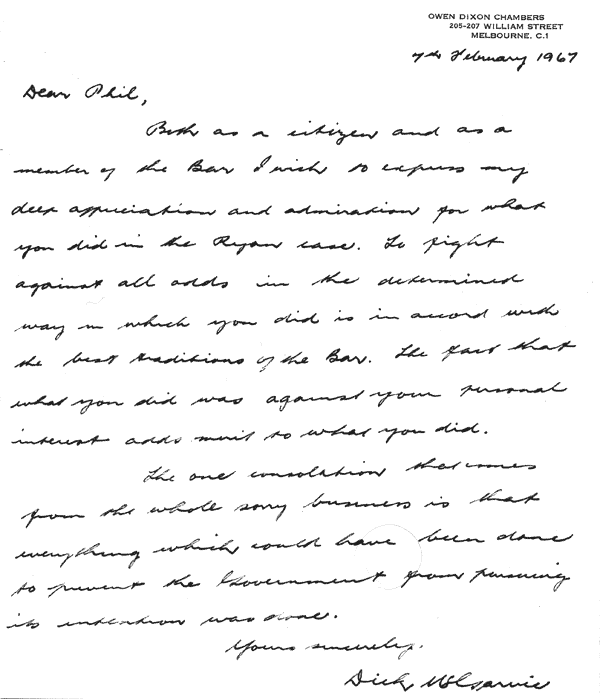 OWEN DIXON CHAMBERS
205-207 WILLIAM STREET
MELBOURNE, C.1
7th February 1967
Dear Phil,
Both as a citizen and as a
member of the Bar I wish to express my
deep appreciation and admiration for what
you did in the Ryan case. To fight
against all odds in the determined
way in which you did is in accord with
the best traditions of the Bar. The fact that
what you did was against your personal
interest adds merit to what you did.
The one consolation that comes
from the whole sorry business is that
everything which could have been done
to prevent the Government from pursuing
its intention was done.
Yours sincerely.
Dick McGarvie